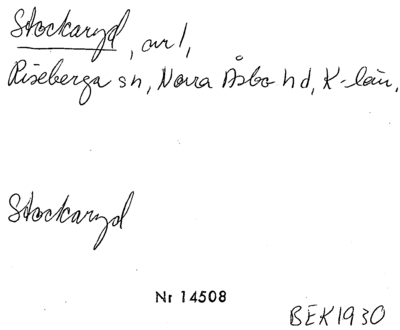 Stockaryd, avs,
Riseberga sn, Norra Åsbo hd, K-län.
Stockaryd
Nr 14508
BEK1930